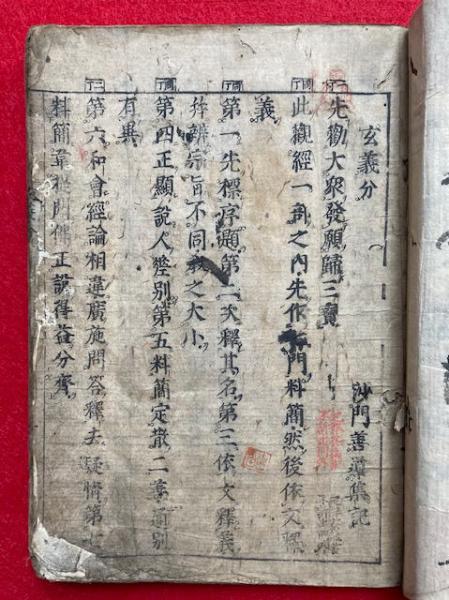 玄義分
沙門善導集記
先勸大衆發願歸三寶
此觀經一部之内先作門料簡然後依文釋
義
第一先標序題第二次釋其名第三依文釋義
并辨宗旨不同教之大小
第四正顯說人差別第五料簡定散二善通別
有異
第六和會經論相違廣施問答釋去疑情第七
料簡韋提聞佛正說得益分齊